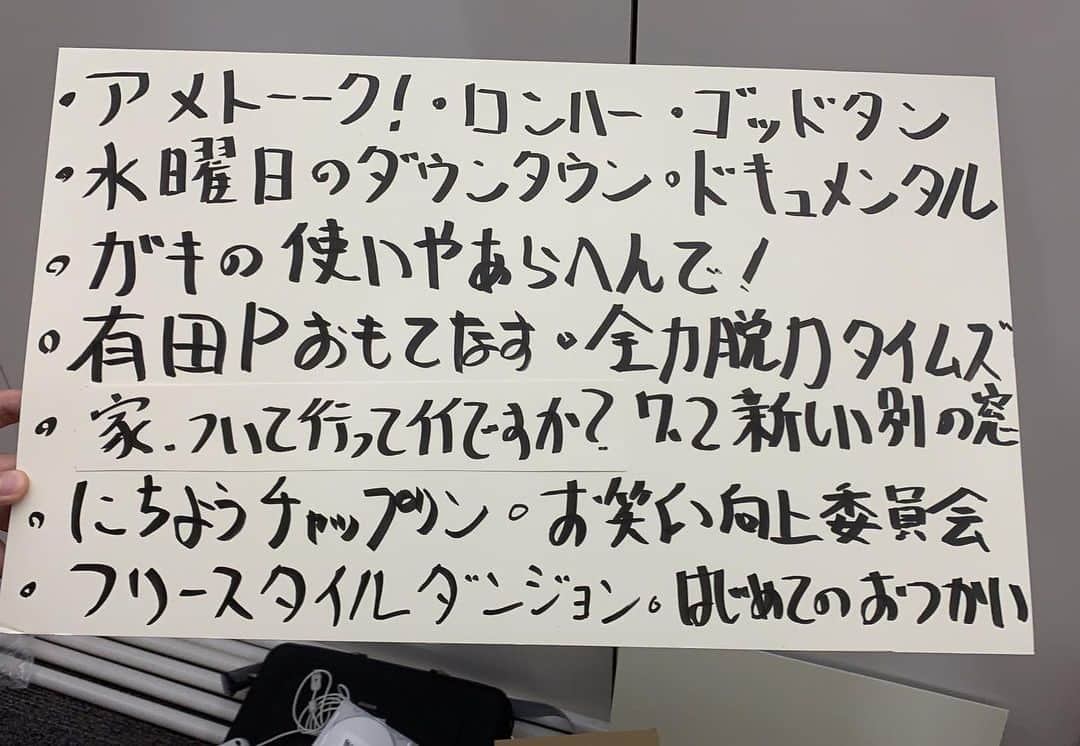 ・アメトーーク!・ロンハー・ゴッドタン
・水曜日のダウンタウン。ドキュメンタル
・ガキの使いやあらへんで!
・有田Pおもてなす。全力脱力タイムズ
・家、ついて行ってイイですか? 7.2新しい別の窓
・にちようチャップリン。お笑い向上委員会
・フリースタイルダンジョン。はじめてのおつかい